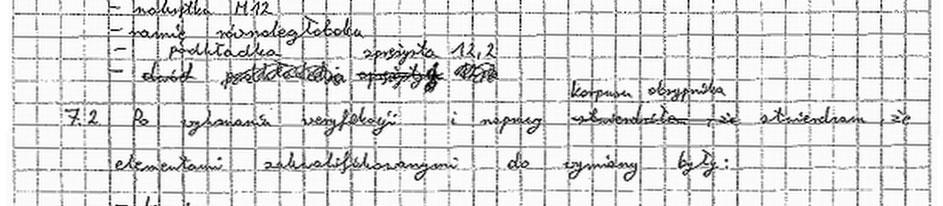 - nakrętka M12
- ramię równoległoboku
- podkładka sprężysta 12,2
korpusu obsypnika
7.2 Po wykonaniu weryfikacji i napraw stwierdzam, że
elementami zakwalifikowanymi do wymiany były: